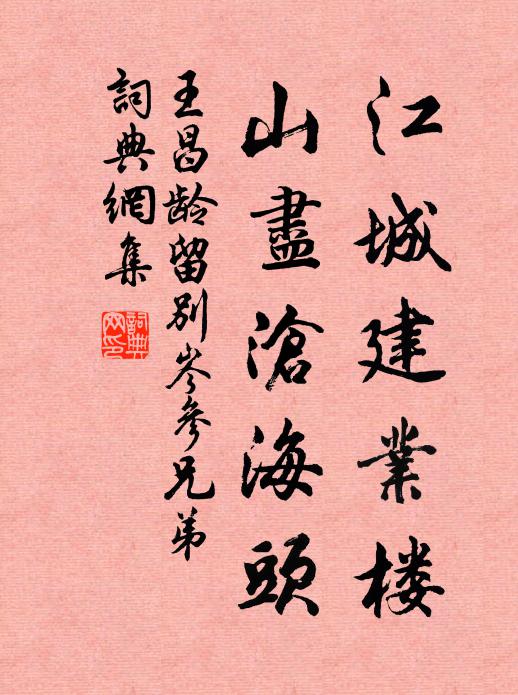 江城建業楼
山盡滄海頭
王昌龄留别岑參兄弟
詞典網集
詞典網印